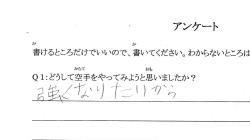 アンケート
書けるところだけでいいので、書いてください。わからないところは
Q1:どうして空手をやってみようと思いましたか？
強くなりたりから